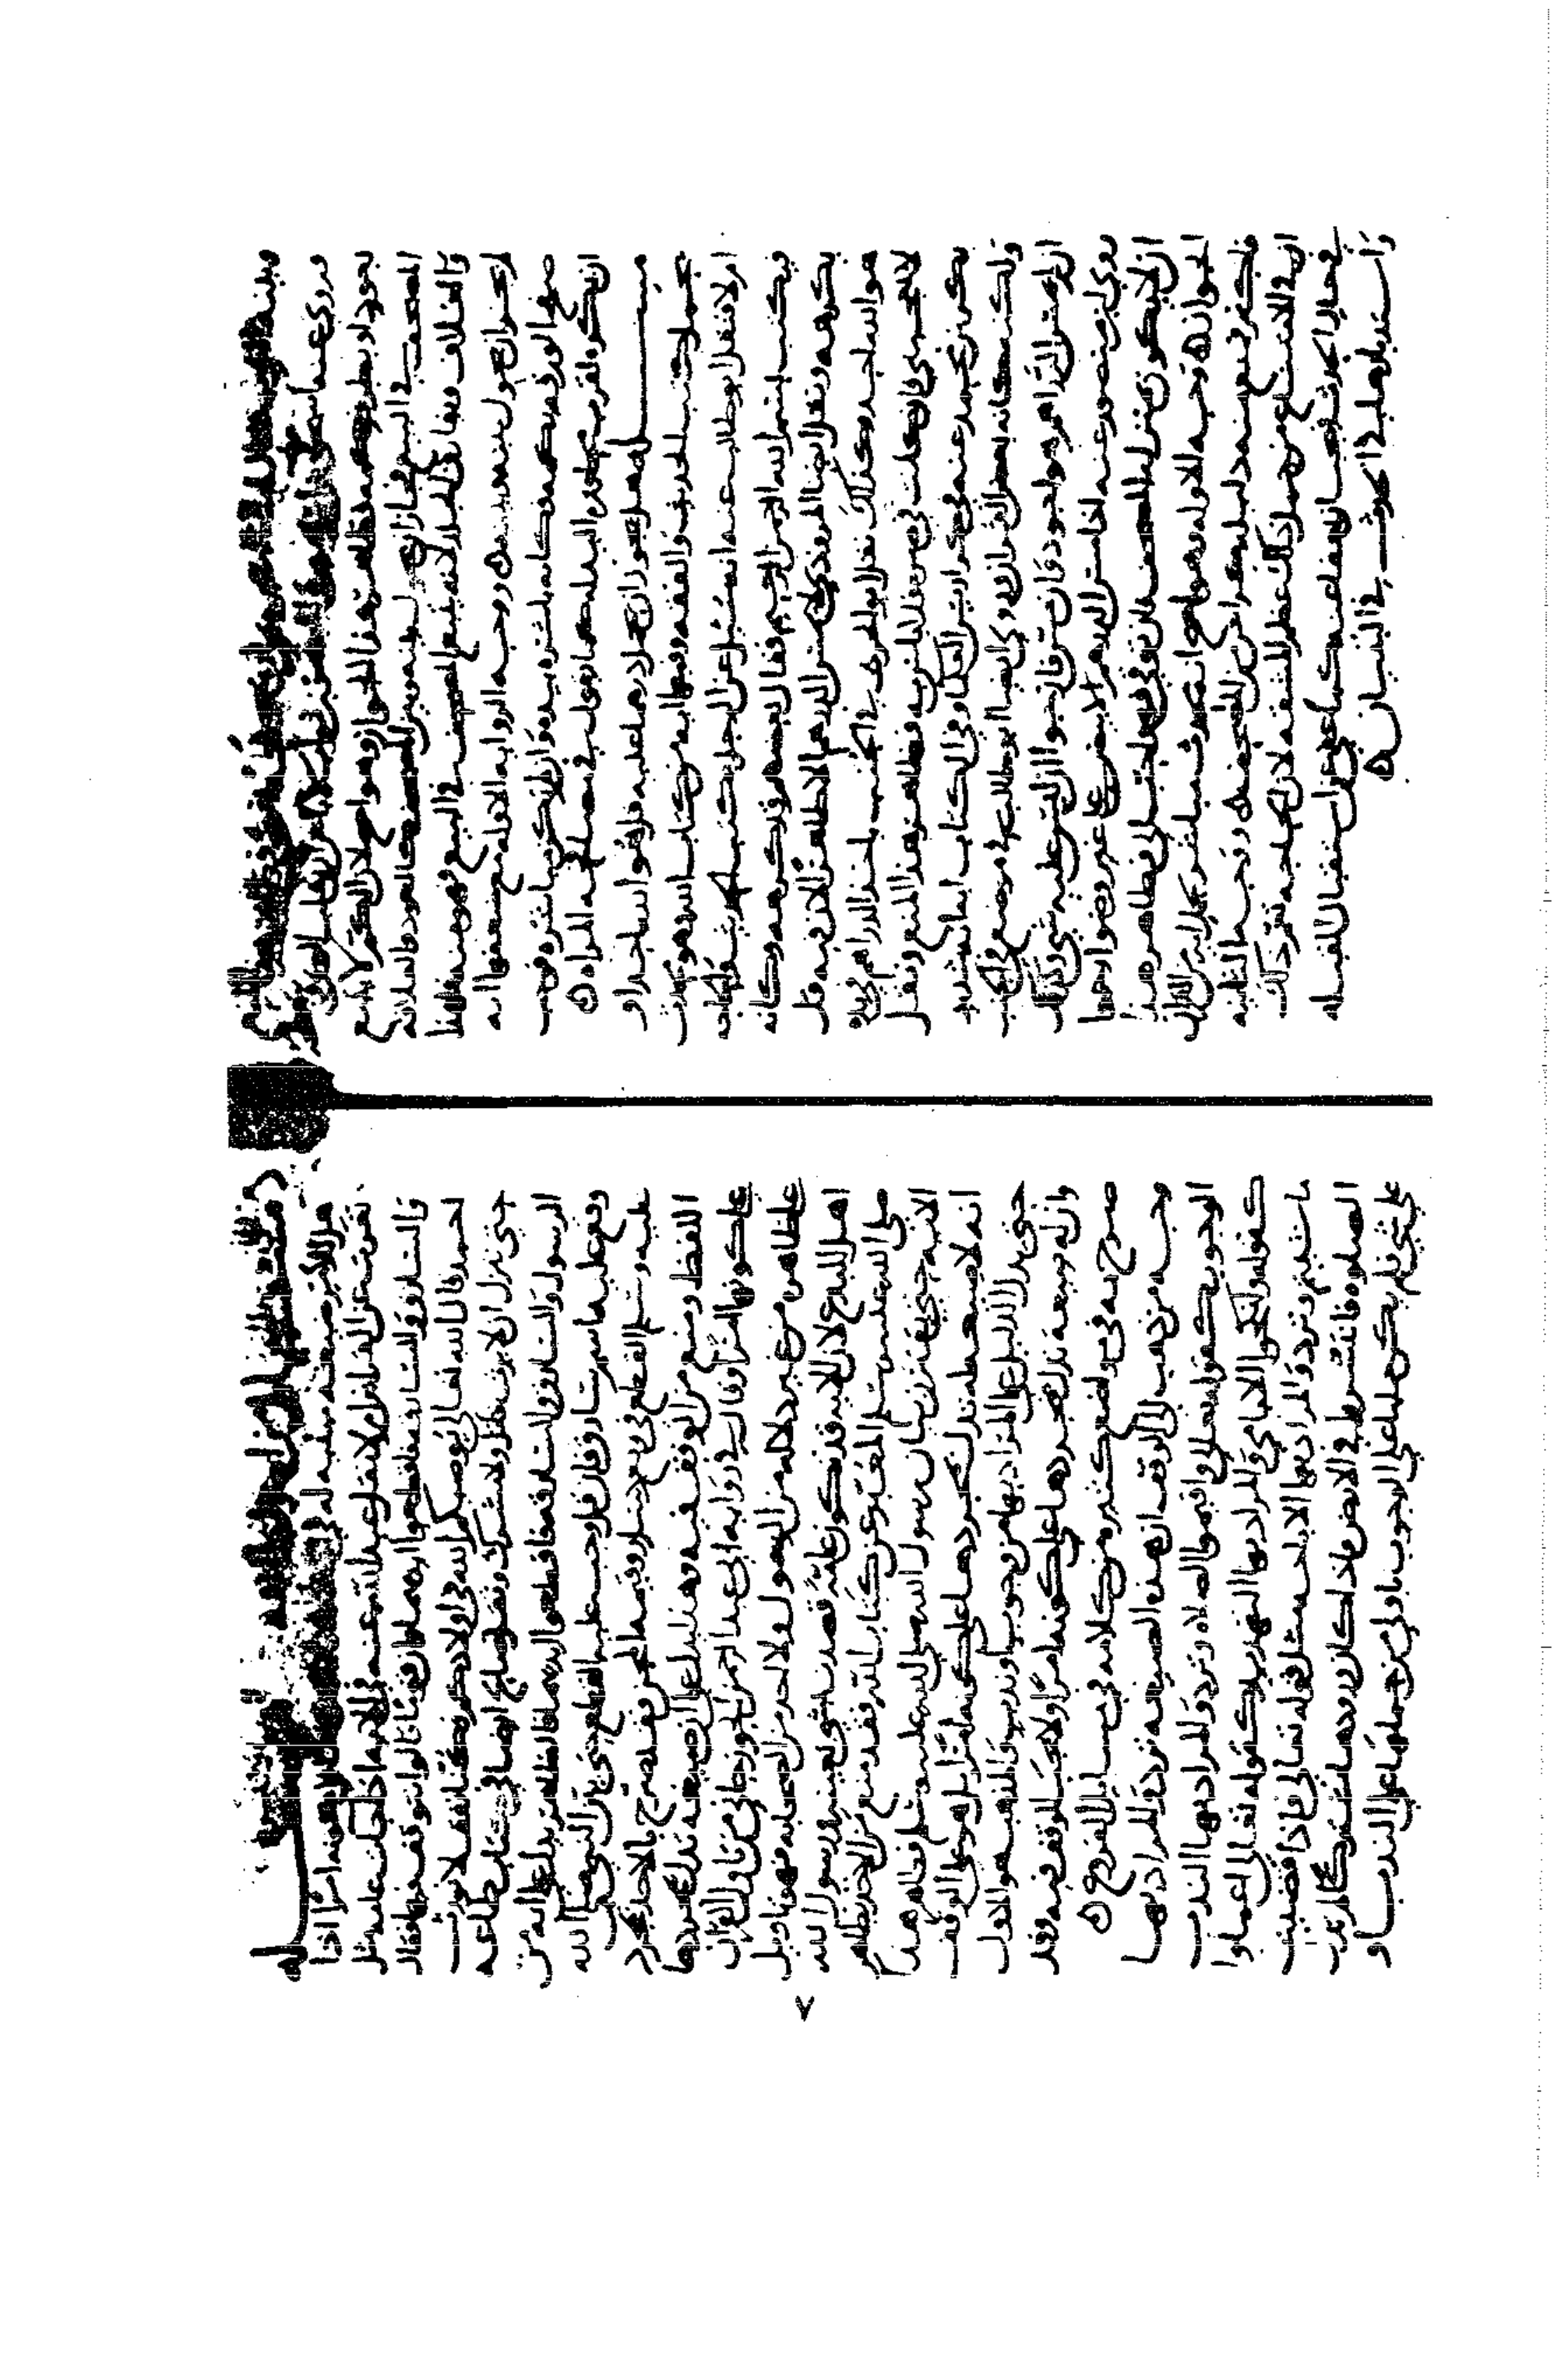 وروي عنه
بعود او بطرف كمه فظاهر هذا الجواز وهو اصح لان الكم لا يتبع
المصحف في البيع فجاز ان يحول بينه وبين المصحف كالعود والعلاقة
والغلاف ويفارق الجلد لانه يتبع المصحف في البيع فهو منه فلهذا
لم يجز ان يحول بينه وبينه ووجه الرواية الاولة مع ضعفها انه
صفح الورقة بكمه فكانه باشره بيده وان لم يكن باشره فيجب
ان يكره لقربه محل اليد كما يقول في مصافحة المراة
مسلة هل يجوز ان يحمل دراهم عليها قل هو الله احد او
يحمل كتب الحديث والفقه وفيها آية من كتاب الله وهو محدث
ام لا فنقل ابو طالب عنه انه سئل عن الرجل يكتب الحديث والحاجة
فيكتب بسم الله الرحمن الرحيم فقال بعضهم قد كرهه وكانه
يكرهه ونقل ايضا المروذي لا يمس الدرهم الا طاهرا لان فيه قل
هو الله احد وكذلك نقل ابو الحرث في الجنب ياخذ الدراهم في يده
لا يعجبني فان كانت في صرة فلا باس به فظاهر هذا المنع ونقل
بكر بن محمد عنه
ولكنه كانه بعض القران وروى ايضا ابو طالب في موضع في الجنب
ان يمس الدراهم هو اجود فان مس فارجوا ان ليس عليه شي وكذلك
روى ابن منصور عنه اذا مس الدراهم لا يضره على غير وضو ارجوا
ان لا يكون بمنزلة المصحف فان توقى فهو احب الي فظاهر هذا
الجواز وجه الاولة وهو اصح انه محدث مباشر لما فيه من القران
فيمنع منه دليله المصحف ووجه الثانية
ان في الامتناع من حمل ذلك عظم المشقة لان الحاجة ذلك
في حال الحدث فجاز ان يعفى عنه كما عفي عن استقبال القبلة
واستدبارها في الحدث في البنيان
هل للامر صيغة مبنية له في اللغة على كونه امرا اذا
تعرت عن القراين نقل عبد الله عنه في الاية اذا جات عامة مثل
والسارق والسارقة فاقطعوا ايديهما ان قوما قالوا نتوقف فيها فقال
احمد قال الله تعالى يوصيكم الله في اولادكم فكنا نقف لا نورث
حتى ينزل ان لا يرث قاتل ولا مشرك ونقل صالح ايضا في كتاب طاعة
الرسول والسارق والسارقة فاقطعوا ايديهما فالظاهر يدل على انه من
وقع عليه اسم سارق وان قل وجب عليه القطع حتى بين النبي صلى الله
عليه وسلم القطع في ربع دينار وقيمة المجن فقد صرح بالاخذ بمجرد
اللفظ ومنع من الوقف فيه وهذا يدل على ان صيغة تدل بمجردها
على كونها امرا وقال في رواية ابي عبد الرحمن الجوزجاني من تاول القران
على ظاهره من غير دلالة من الرسول ولا احد من الصحابة فهو تاويل
اهل البدع لان الاية قد تكون عامة قصدت لشي بعينه ورسول الله
صلى الله عليه وسلم المعبر عن كتاب الله فقد منع من الاخذ بظاهر
الاية حتى يقترن بيان رسول الله صلى الله عليه وسلم فظاهر هذا
انه لا صيغة له تدل بمجردها على كونه امرا بل هو على الوقف
حتى يدل الدليل على المراد بها من وجوب او ندب والمذهب هو الاول
وان له صيغة تدل بمجردها على كونه امرا ولا يجب الوقف فيه وقد
صرح به في مواضع كثيرة من كلامه في مسايل الفروع
وجه من ذهب الى الوقف ان هذه الصيغة ترد والمراد بها
الوجوب كقوله تعالى واقيموا الصلاة وترد والمراد بها الندب
كقوله وانكحوا الايامى والمراد بها التهديد كقوله تعالى اعملوا
ما شيتم وترد والمراد بها الاباحة مثل قوله تعالى فاذا قضيت
الصلوة فانتشروا في الارض فاذا كان ورودها مشتركا لم يدل
على شي فلم يكن حملها على الوجوب باولى من حملها على الندب او
٧